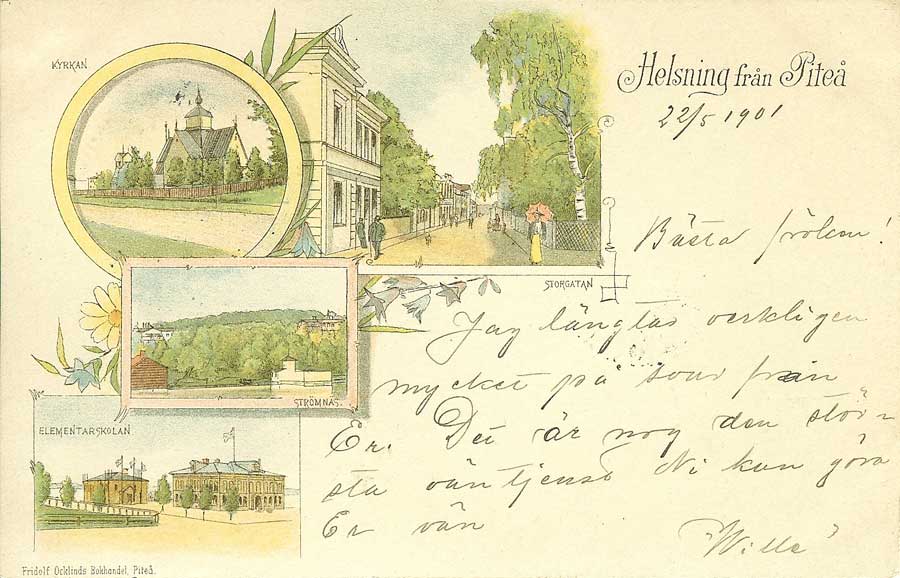 KYRKAN
Helsning från Piteå
22/5 1901
Bästa fröken!
STORGATAN
Jag längtar verkligen
mycket på svar från
Er. Det är nog den stör-
sta väntjenst Ni kan göra
Er vän
"Wille"
STRÖMNÄS.
ELEMENTARSKOLAN
Fridolf Öcklinds Bokhandel, Piteå.